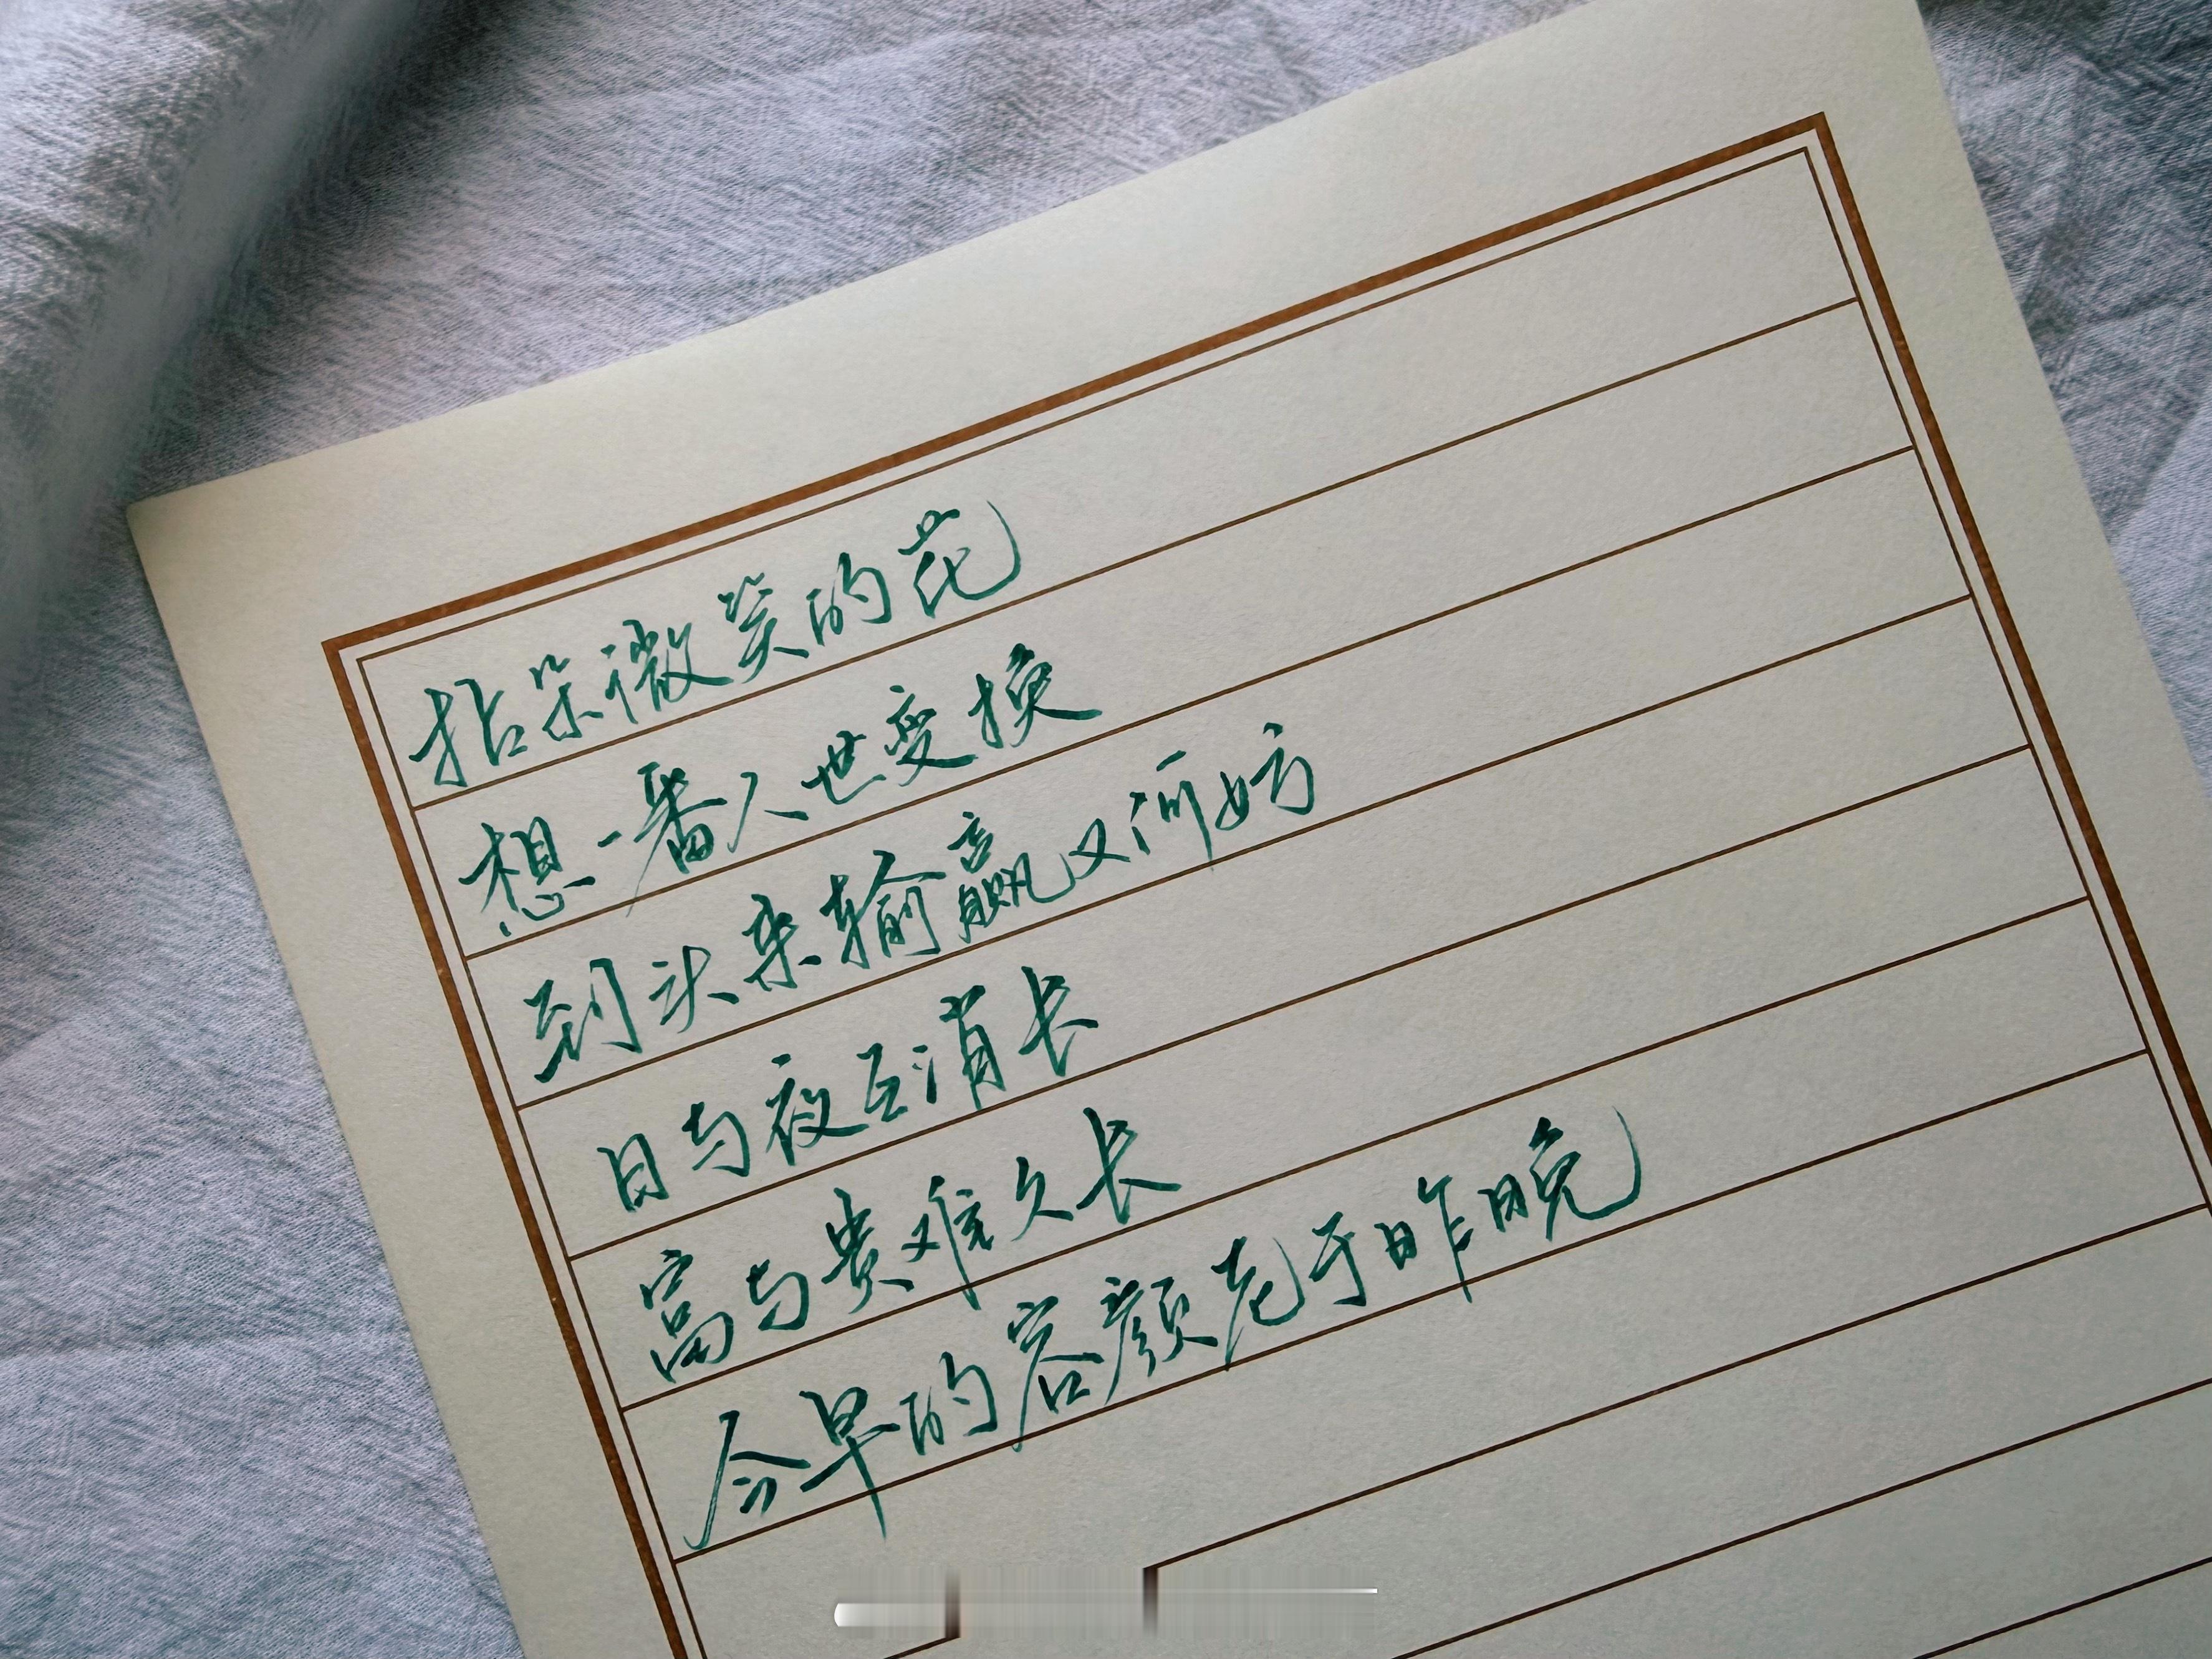 拈朵微笑的花
想一番人世变换
到头来输赢又何妨
日与夜互消长
富与贵难久长
今早的容颜老于昨晚